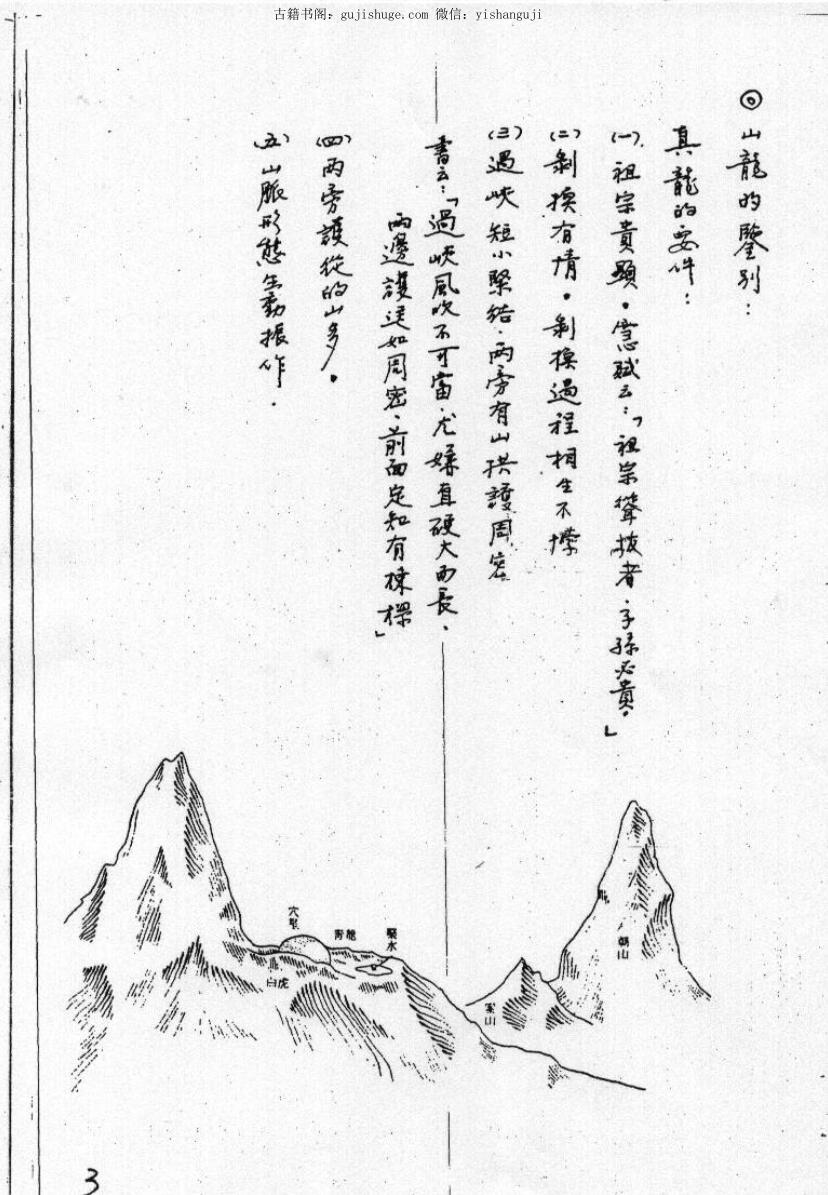 古籍书阁：gujishuge.com 微信：yishanguji
◎山龍的鑒別：
真龍的要件：
(一)祖宗貴顯。雪心賦云：「祖宗聳拔者．子孫必貴。」
(二)剝換有情。剝換過程相生不悖
(三)過峽短小緊結．兩旁有山拱護周密
書云：「過峽風吹不可當．尤嫌直硬大而長．
兩邊護送如周密．前面定知有棟樑」
(四)兩旁護從的山多。
(五)山脈形態生動振作．
穴
青龍
聚水
白虎
案山
朝山
3